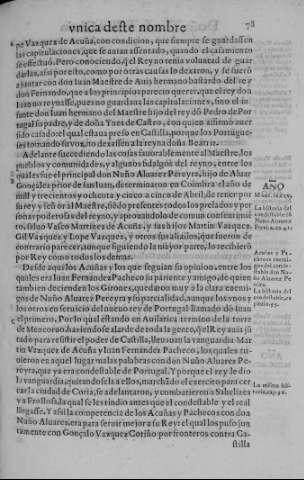 vnica deste nombre 78
pe Vazquez de Acuña, con condicion, que siempre se guardassen
las capitulaciones, que se auian assentado, quando el casamiento
se effectuó. Pero conociendo, q̃ el Rey no tenia voluntad de guar
darlas, assi por esto, como por otras causas lo dexaron, y se fuerõ
a juntar con don Iuan Maestre de Auis hermano bastardo del rey
don Fernando, que a los principios pareció querer, que don Iuan
luan no reynasse, pues no guardaua las capitulaciones, sino el in-
fante don Iuan hermano del Maestre hijo del rey dõ Pedro de Por
tugal su padre, y de doña Ynes de Castro, con quien affirmó auer
sido casado: el qual estaua preso en Castilla, porque los Portugue-
ses tomando su voz, no dexassen a la reyna doña Beatriz.
Adelante succediendo las cosas fauorablemente al Maestre, los
pueblos y comunidades, y algunos hidalgos del reyno, entre los
quales fue el principal don Nuño Aluarez Pereyra, hijo de Aluar
Gonçalez prior de san Iuan, determinaron en Coimbra el año de
mil y trecientos y ochenta, y cinco a cinco de Abril, de tener por
rey y señor al Maestre, siẽdo presentes todos los prelados y per
sonas poderosas del reyno, y aprouandolo de comun consentimiẽ
to, solos Vasco Martinez de Acuña, y sus hijos Martin Vazquez,
Gil Vazquez y Lope Vazquez, y otros sus aliados, que fueron de
contrario parecer, aunque siguiendo la mayor parte, lo recibierõ
por Rey como todos los demas.
Desde aqui los Acuñas y los que seguian su opinion, entre los
quales era Iuan Fernãdez Pacheco su pariente y amigo, dẽ quien
tambien decienden los Girones, quedaron muy a la clara enemi-
gos de Nuño Aluarez Pereyra y su parcialidad, aunque los vnos y
los otros en seruicio del nueuo rey de Portugal llamado dõ Iuan
el primero. Por lo qual estando en
de Moncoruo, haziendose alarde de toda la gente, q̃ el Rey auia jũ
tado para resistir el poder de Castilla, lleuauan la vanguardia Mar
tin Vazquez de Acuña y Iuan Fernandez Pacheco, los quales tu-
uieron en aquel lugar malas palabras con don Nuño Aluarez Pe-
reyra, que ya era condestable de Portugal. Y porque el rey le dio
la vanguardia, quitandosela a ellos, marchãdo el exercito para cer
car la ciudad de Coria, se adelantaron, y combatieron a Sabelizes
y a Frollosa, la qual se les rindio antes que el condestable y el real
llegasse. Y assi la competencia de los Acuñas y Pachecos con don
Nuño Aluarez, era para seruir mejor a su Rey: el qual los puso jun
tamente con Gonçalo Vazquez Cotiño por fronteros contra Ca-
stilla
AÑO
La historia del
condestable dõ
Nuño Aluarez
Acuñas y Pa-
checos enemi-
gos del conde-
stable don Nu-
ño Aluarez Pe
reira.
La historia del
condestable, ca
La misma his-